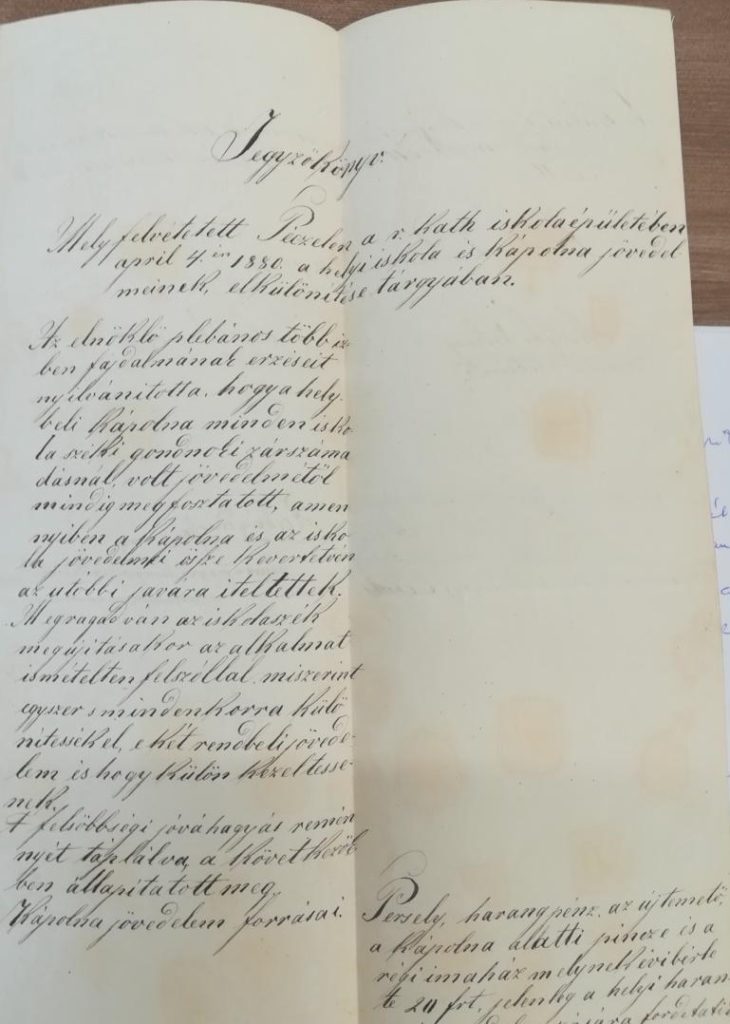 Jegyzőkönyv.
Mely felvétetett Péczelen a r. Kath iskolaépületében
april 4.in 1880. a helyi iskola és Kápolna jövedel
meinek, elkülönitése tárgyában.
Az elnöklő plebános több iz-
ben fajdalmának erzéseit
nyilvánitotta, hogy a hely.
beli Kápolna minden isko
la széki gondnoki zárszáma
dásnál, volt jövedelmétől
mindig megfosztatott, amen
nyiben a Kápolna és az isko
la jövedelmei össze kevertetvén
az utóbbi javára iteltettek.
Megragadván az iskolaszék
megújitásakor az alkalmat
ismételten felszóllal, miszerint
egyszer s mindenkorra külö
nitessékel, e két rendbeli jövede-
lem és hogy Külön kezeltesse-
nek.
A felsőbbségi jóváhagyás remén
nyét táplálva, a következők
ben állapitatott meg.
Kápolna jövedelem forrásai.
Persely, harangpénz, az új temető,
a Kápolna alatti pincze és a
régi imaház melynek évi bérle
te 20 frt, jelenleg a helyi haran-